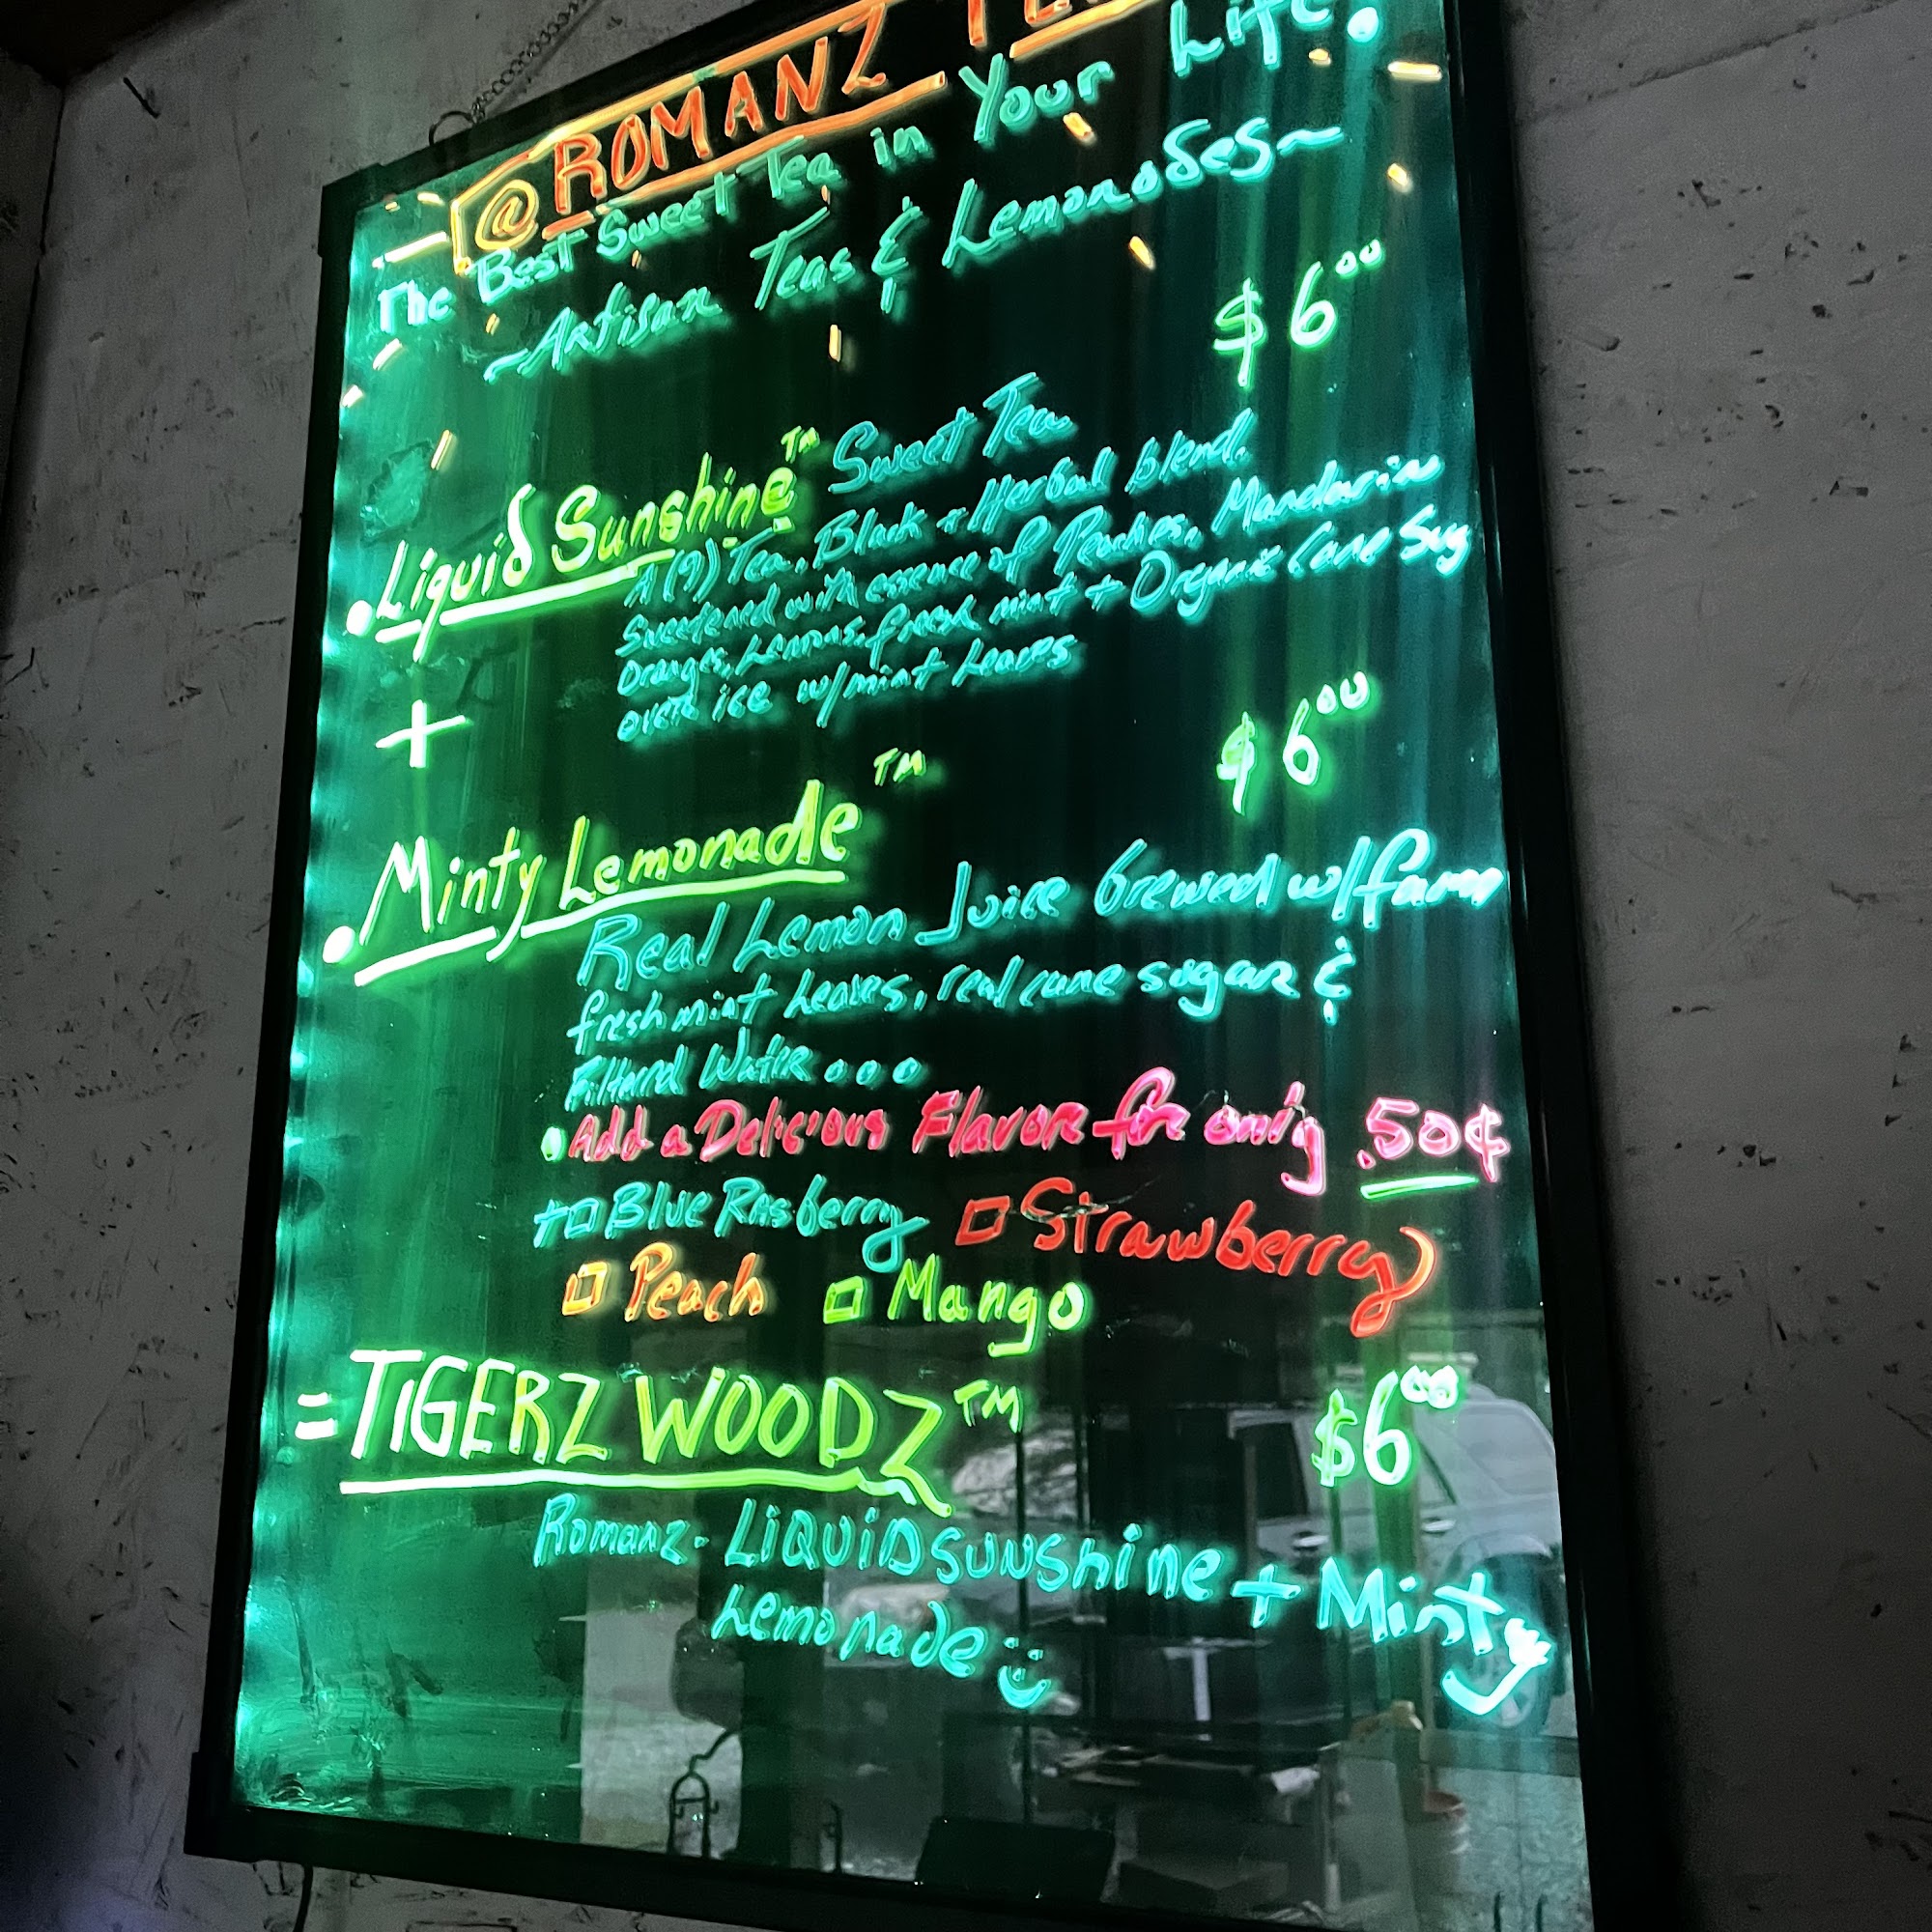 @ROMANZ
The Best Sweet Tea in Your Life.
~Artisan Teas & Lemonades~
$6⁰⁰
•Liquid Sunshine™ Sweet Tea
A (9) Tea, Black + Herbal blend.
Sweetened with essence of Peaches, Mandarin
Oranges, Lemons, fresh mint + Organic Cane Sug
over ice w/mint Leaves
+
$6⁰⁰
•Minty Lemonade™
Real Lemon Juice brewed w/farm
fresh mint leaves, real cane sugar &
Filtered Water...
•Add a Delicious Flavor for only .50¢
+□ Blue Rasberry □ Strawberry
□ Peach □ Mango
=TIGERZ WOODZ™ $6⁰⁰
Romanz- LiQUiD SUNShine + Minty
Lemonade